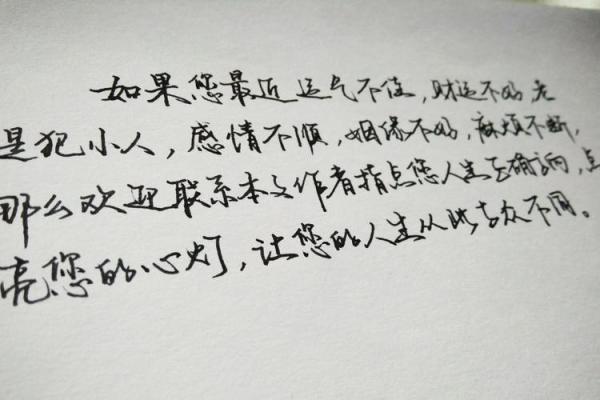 如果您最近运气不佳，财运不好，老
是犯小人，感情不顺，姻缘不好，麻烦不断，
那么欢迎联系本文作者指点您人生正确方向，点
亮您的心灯，让您的人生从此与众不同。